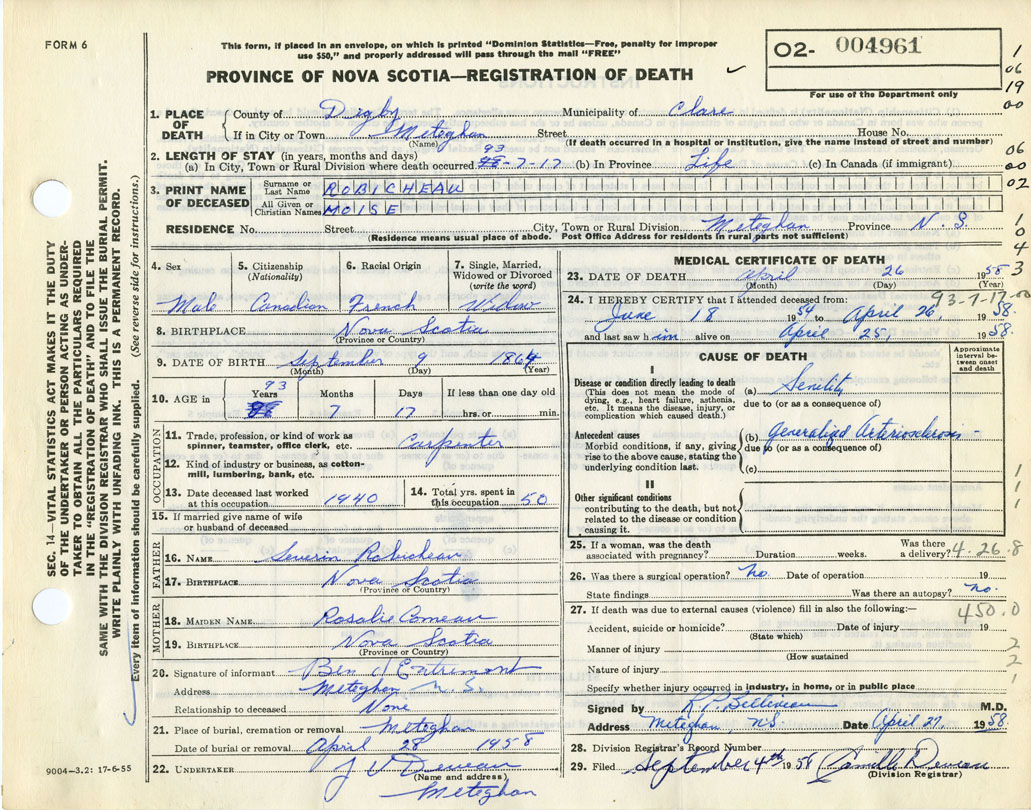 FORM 6
This form, if placed in an envelope, on which is printed "Dominion Statistics—Free, penalty for improper
use $50," and properly addressed will pass through the mail "FREE"
PROVINCE OF NOVA SCOTIA—REGISTRATION OF DEATH
O2- 004961
For use of the Department only
1
06
19
00
06
00
02
1
0
4
3
1. PLACE OF DEATH
County of Digby Municipality of Clare
If in City or Town Meteghan Street House No.
(Name) (If death occurred in a hospital or institution, give the name instead of street and number)
2. LENGTH OF STAY (in years, months and days)
(a) In City, Town or Rural Division where death occurred 93-7-17 (b) In Province Life (c) In Canada (if immigrant)
3. PRINT NAME OF DECEASED
Surname or Last Name ROBICHEAU
All Given or Christian Names MOISE
RESIDENCE No. Street City, Town or Rural Division Meteghan Province N.S.
(Residence means usual place of abode. Post Office Address for residents in rural parts not sufficient)
SEC. 14—VITAL STATISTICS ACT MAKES IT THE DUTY
OF THE UNDERTAKER OR PERSON ACTING AS UNDER-
TAKER TO OBTAIN ALL THE PARTICULARS REQUIRED
IN THE "REGISTRATION OF DEATH" AND TO FILE THE
SAME WITH THE DIVISION REGISTRAR WHO SHALL ISSUE THE BURIAL PERMIT.
WRITE PLAINLY WITH UNFADING INK. THIS IS A PERMANENT RECORD.
Every item of information should be carefully supplied. (See reverse side for instructions.)
4. Sex
Male
5. Citizenship
(Nationality)
Canadian
6. Racial Origin
French
7. Single, Married,
Widowed or Divorced
(write the word)
Widow
8. BIRTHPLACE Nova Scotia
(Province or Country)
9. DATE OF BIRTH September 9 1864
(Month) (Day) (Year)
10. AGE in
Years 93
Months 7
Days 17
If less than one day old
hrs. or min.
OCCUPATION
11. Trade, profession, or kind of work as
spinner, teamster, office clerk, etc. Carpenter
12. Kind of industry or business, as cotton-
mill, lumbering, bank, etc.
13. Date deceased last worked
at this occupation 1940
14. Total yrs. spent in
this occupation 50
15. If married give name of wife
or husband of deceased
FATHER
16. NAME Severin Robicheau
17. BIRTHPLACE Nova Scotia
(Province or Country)
MOTHER
18. MAIDEN NAME Rosalie Comeau
19. BIRTHPLACE Nova Scotia
(Province or Country)
20. Signature of informant Ben d'Entremont
Address Meteghan N.S.
Relationship to deceased None
21. Place of burial, cremation or removal Meteghan
Date of burial or removal April 28 1958
22. UNDERTAKER J V Deveau
(Name and address)
Meteghan
9004—3.2: 17-6-55
MEDICAL CERTIFICATE OF DEATH
23. DATE OF DEATH April 26 1958
(Month) (Day) (Year)
93-7-17-00
24. I HEREBY CERTIFY that I attended deceased from:
June 18 1954 to April 26, 1958.
and last saw him alive on April 25, 1958.
CAUSE OF DEATH
Approximate
interval be-
tween onset
and death
I
Disease or condition directly leading to death
(This does not mean the mode of
dying, e.g., heart failure, asthenia,
etc. It means the disease, injury, or
complication which caused death.)
(a) Senility
due to (or as a consequence of)
Antecedent causes
Morbid conditions, if any, giving
rise to the above cause, stating the
underlying condition last.
(b) Generalized Arteriosclerosis -
due to (or as a consequence of)
(c)
II
Other significant conditions
contributing to the death, but not
related to the disease or condition
causing it.
1
1
1
25. If a woman, was the death
associated with pregnancy? Duration weeks. Was there
a delivery?
4.26.8
26. Was there a surgical operation? No. Date of operation 19
State findings Was there an autopsy? no.
27. If death was due to external causes (violence) fill in also the following:—
450.0
Accident, suicide or homicide? Date of injury 19
(State which)
Manner of injury
(How sustained
Nature of injury
2
2
1
Specify whether injury occurred in industry, in home, or in public place
Signed by R.P. Belliveau M.D.
Address Meteghan, N.S. Date April 27, 1958.
28. Division Registrar's Record Number
29. Filed September 4th 1958 Camille Deveau
(Division Registrar)